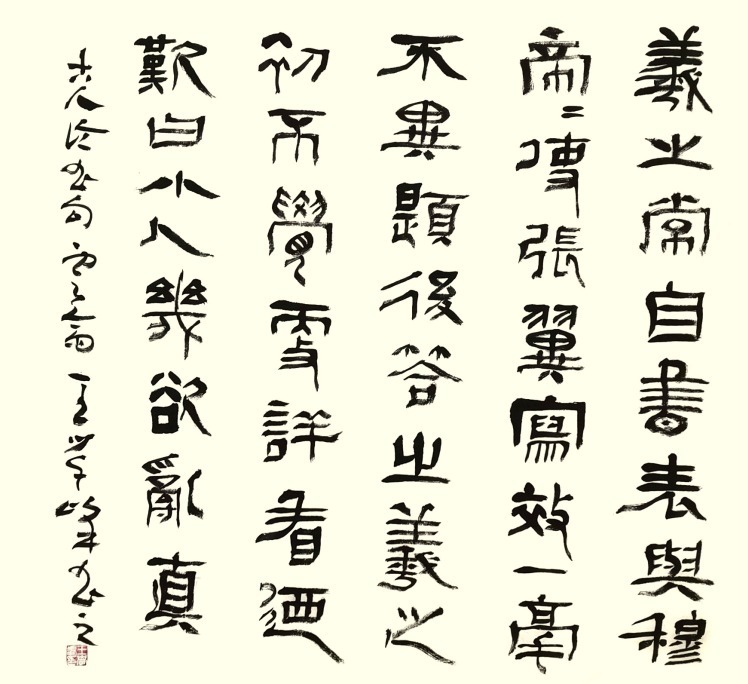 羲之常自書表與穆
帝〻使張翼寫效一毫
不異題後答之羲之
初不覺更詳看迺
歎曰小人幾欲亂真
古人論書句